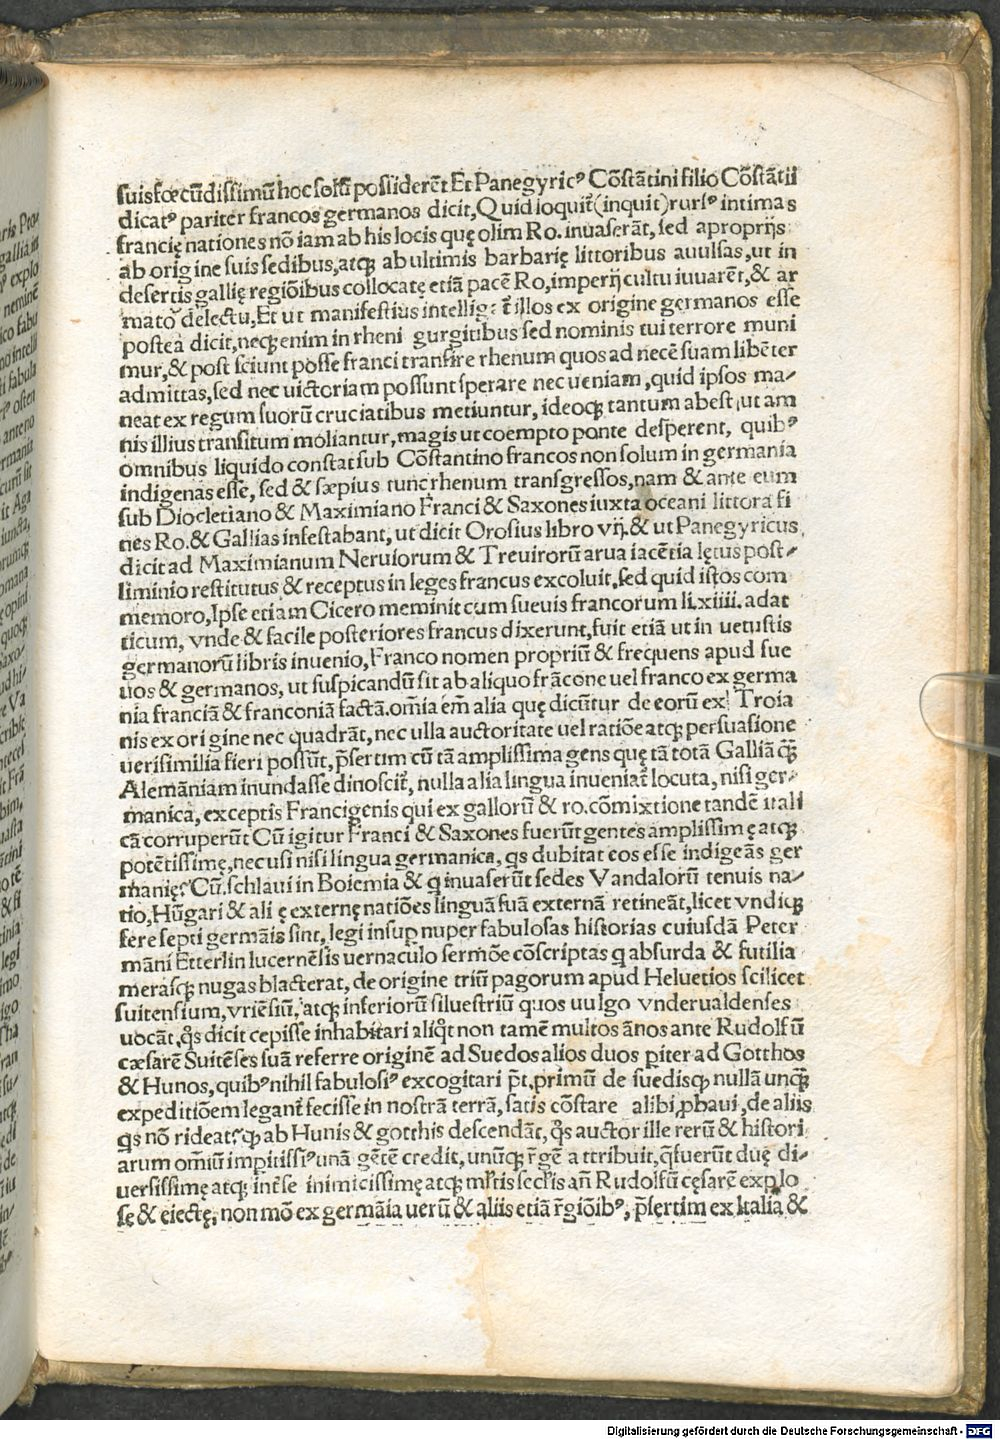 suisfœcūdissimū hoc solū possiderēt Et Panegyricꝰ Cōstātini filio Cōstātii
dicatꝰ pariter francos germanos dicit, Quid loquit̄ (inquit) rursꝰ intimas
francię nationes nō iam ab his locis quę olim Ro. inuaserāt, sed a proprijs
ab origine suis sedibus, atqꝫ ab ultimis barbarię littoribus auulsas, ut in
desertis gallię regiōibus collocatę etiā pacē Ro, imperij cultu iuuarēt, & ar
mato᷒ delectu, Et ut manifestius intelligat̄ illos ex origine germanos esse
postea dicit, neqꝫ enim in rheni gurgitibus sed nominis tui terrore muni
mur, & post sciunt posse franci transire rhenum quos ad necē suam libēter
admittas, sed nec uictoriam possunt sperare nec ueniam, quid ipsos ma⸗
neat ex regum suorū cruciatibus metiuntur, ideoqꝫ tantum abest, ut am
nis illius transitum moliantur, magis ut coempto ponte desperent, quibꝰ
omnibus liquido constat sub Cōstantino francos non solum in germania
indigenas esse, sed & sæpius tunc rhenum transgressos, nam & ante eum
sub Diocletiano & Maximiano Franci & Saxones iuxta oceani littora fi
nes Ro. & Gallias infestabant, ut dicit Orosius libro vij. & ut Panegyricus
dicit ad Maximianum Neruiorum & Treuirorū arua iacētia lętus post⸗
liminio restitutus & receptus in leges francus excoluit, sed quid istos com
memoro, Ipse etiam Cicero meminit cum sueuis francorum li. xiiii. ad at
ticum, vnde & facile posteriores francus dixerunt, fuit etiā ut in uetustis
germanorū libris inuenio, Franco nomen propriū & frequens apud sue
uos & germanos, ut suspicandū sit ab aliquo frācone uel franco ex germa
nia franciā & franconiā factā. omīa em̄ alia quę dicūtur de eorū ex Troia
nis ex origine nec quadrāt, nec ulla auctoritate uel ratiōe atqꝫ persuasione
uerisimilia fieri possūt, p̄sertim cū tā amplissima gens quę tā totā Galliā qꝫ̄
Alemāniam inundasse dinoscit̄, nulla alia lingua inueniat̄ locuta, nisi ger⸗
manica, exceptis Francigenis qui ex gallorū & ro. cōmixtione tandē itali
cā corruperūt Cū igitur Franci & Saxones fuerūt gentes amplissimę atqꝫ
potētissimę, nec usi nisi lingua germanica, q̄s dubitat eos esse indigeās ger
manię? Cū. schlaui in Boiemia & q inuaserūt sedes Vandalorū tenuis na⸗
tio, Hūgari & alię externę natiōes linguā suā externā retineāt, licet vndiqꝫ
fere septi germāis sint, legi insuꝑ nuper fabulosas historias cuiusdā Peter
māni Etterlin lucernēsis uernaculo sermōe cōscriptas q absurda & futilia
merasqꝫ nugas blacterat, de origine triū pagorum apud Heluetios scilicet
suitensium, vriēsiū, atqꝫ inferiorū siluestriū quos uulgo vnderualdenses
uocāt, q̊s dicit cepisse inhabitari aliq̊t non tamē multos ānos ante Rudolfū
cæsarē Suitēses suā referre originē ad Suedos alios duos ꝑiter ad Gotthos
& Hunos, quibꝰ nihil fabulosiꝰ excogitari p̄t, primū de suedisqꝫ nullā unqꝫ̄
expeditiōem legant̄ fecisse in nostrā terrā, satis cōstare alibi ꝓbaui, de aliis
q̄s nō rideat, qꝫ ab Hunis & gotthis descendāt, q̊s auctor ille rerū & histori
arum omīū imꝑitissiꝰ unā gētē credit, unūqꝫ r̄gē attribuit, q̄ fuerūt duę di⸗
uersissimę atqꝫ int̄ se inimicissimę atqꝫ ml̄tis secl̄is an̄ Rudolfū cęsarē explo
sę & eiectę, non mō ex germāia uerū & aliis etiā r̄giōibꝰ, p̄sęrtim ex Italia &
Digitalisierung gefördert durch die Deutsche Forschungsgemeinschaft - DFG